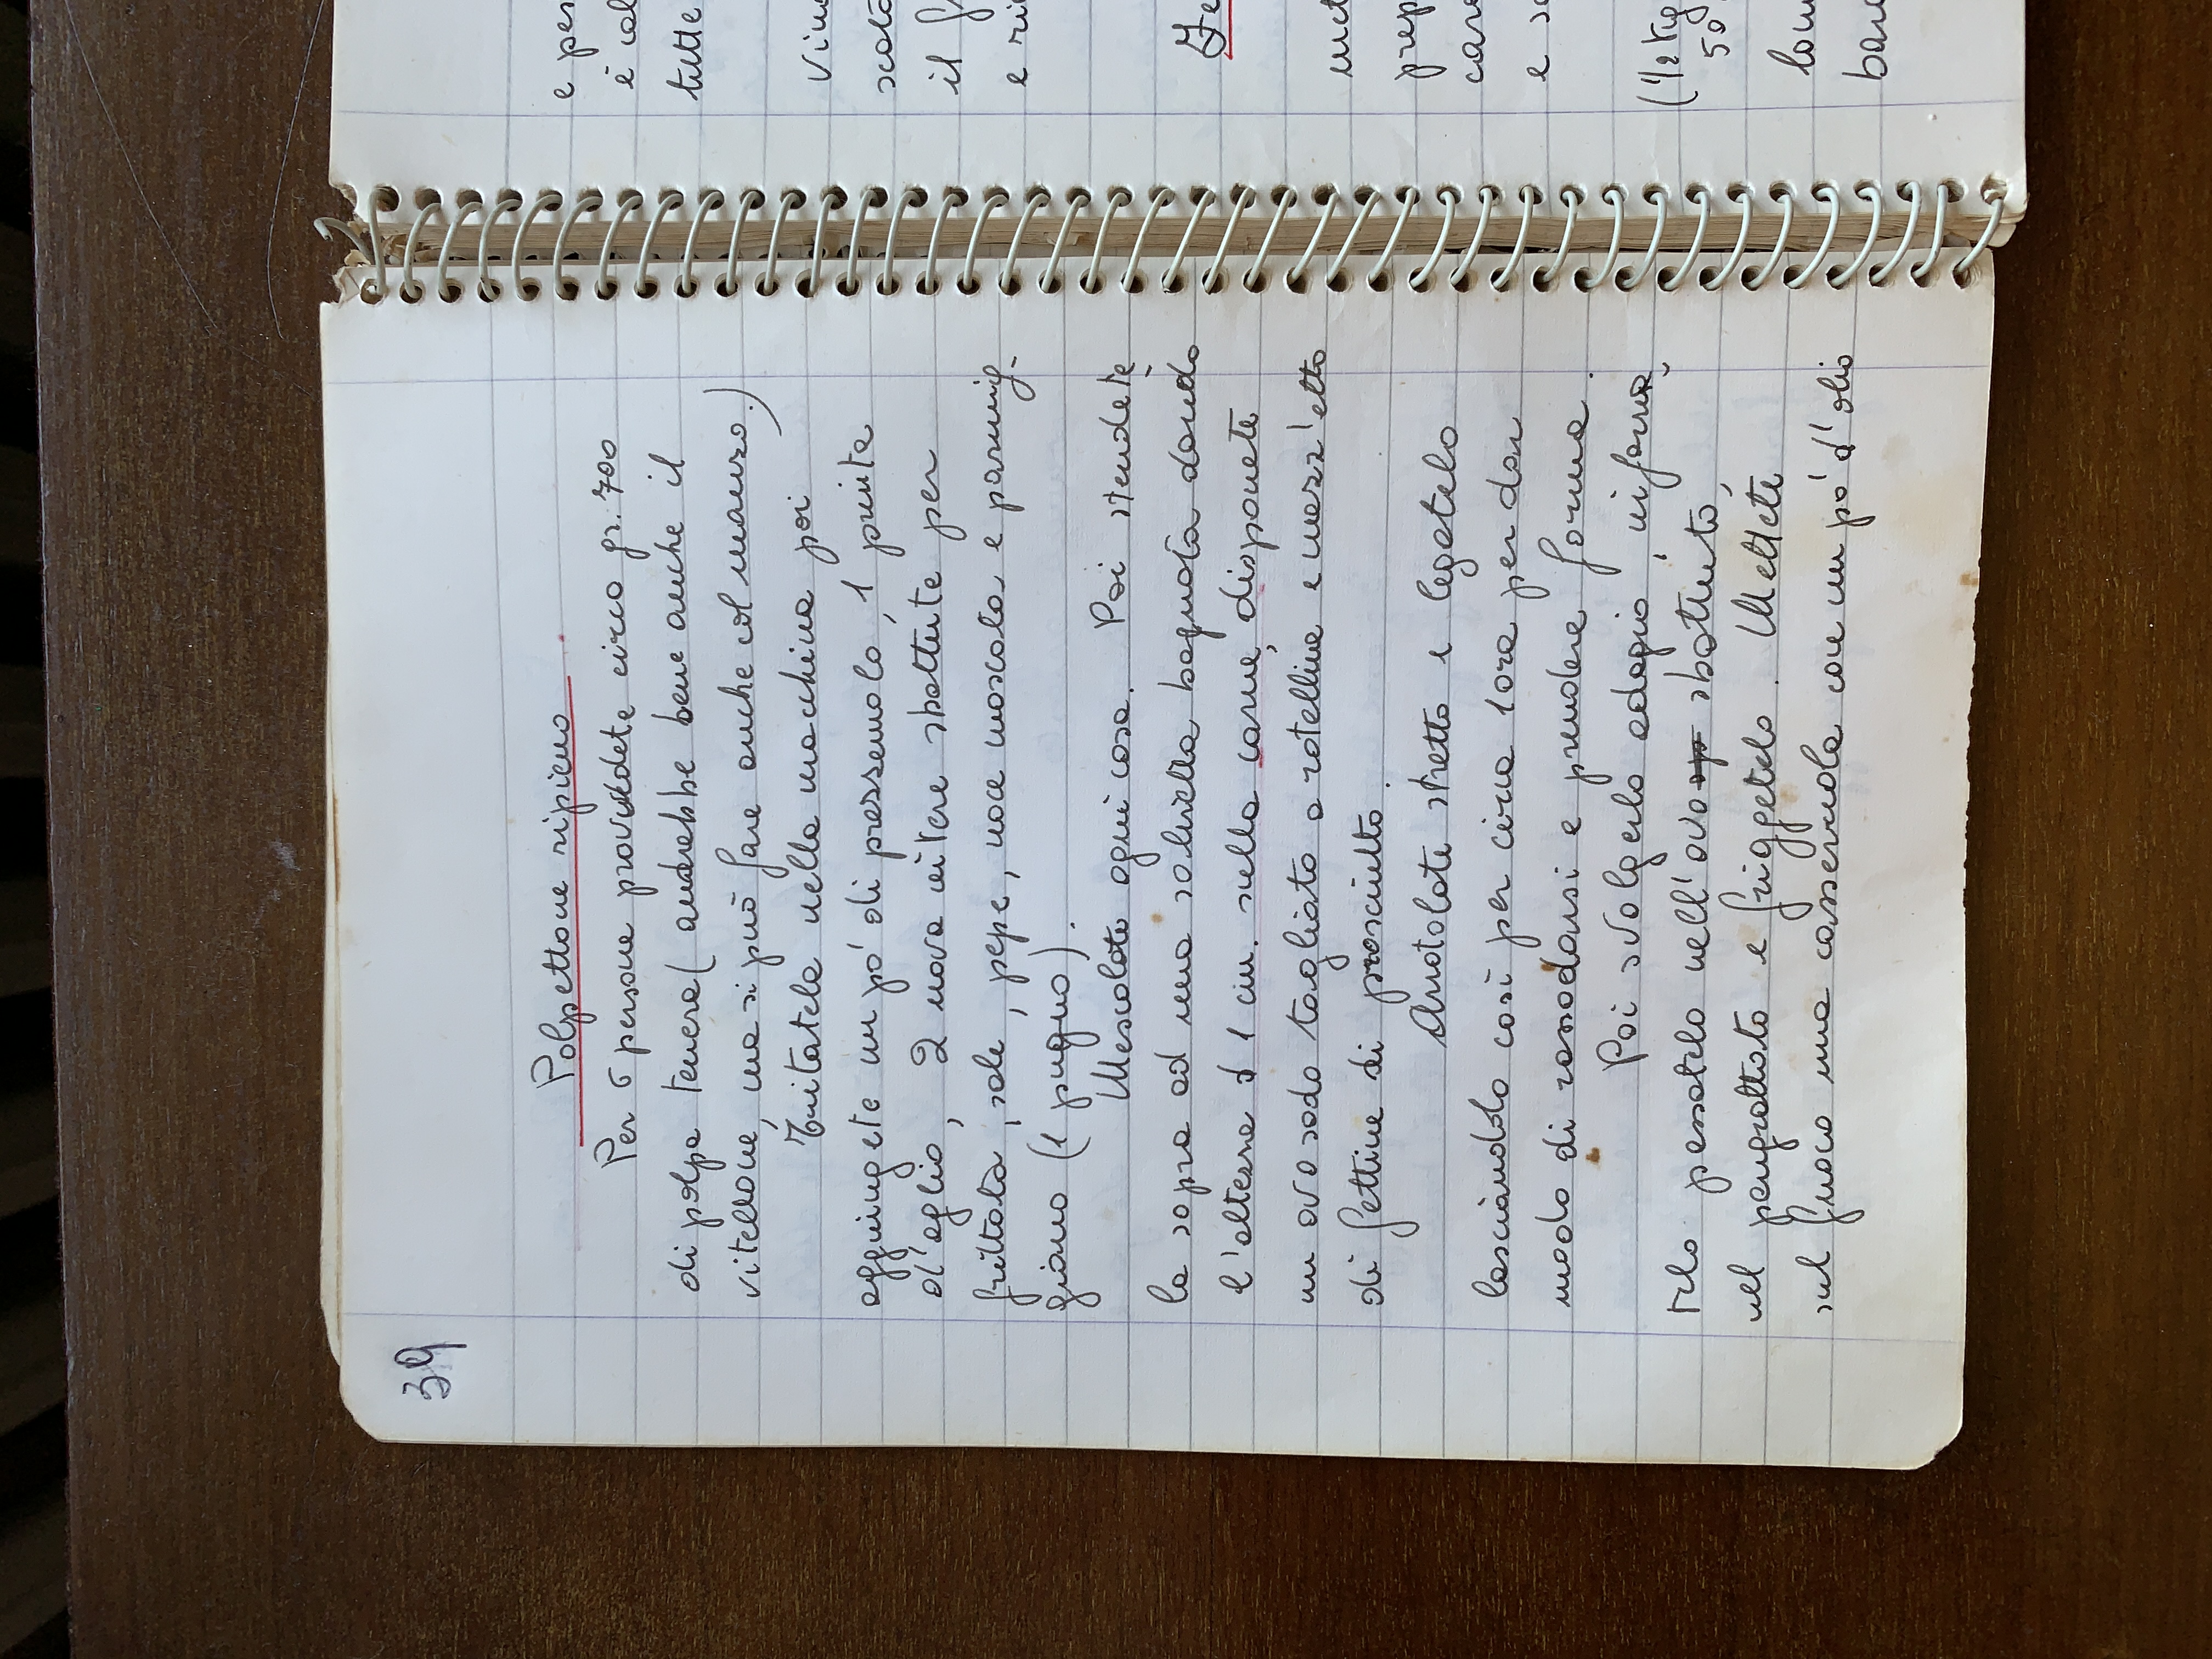 39
Polpettone ripieno
Per 6 persone provvedete circa gr. 700
di polpa tenera ( andrebbe bene anche il
vitellone, ma si può fare anche col manzo.)
Tritatela nella macchina poi
aggiungete un pò' di prezzemolo, 1 punta
d'aglio, 2 uova intere sbattute per
frittata, sale, pepe, noce moscata e parmig-
giano (1 pugno).
Mescolate ogni cosa. Poi stendete
la sopra ad una salvietta bagnata dando
l'altezza d 1 cm. sulla carne, disponete
un ovo sodo tagliato a rotelline e mezz'etto
di fettine di prosciutto.
Arrotolate stretto e legatelo
lasciandolo così per circa 1 ora per dar
modo di rassodarsi e prendere forma.
Poi svolgerlo adagio, infarina-
telo passatelo nell'ovo sbattuto,
nel pangrattato e friggetelo. Mettete
sul fuoco una casseruola con un pò' d'olio
e per
è col
tutte
vino
scato
il fr
e ri
Fe
met
prep
caro
e so
(1/2 Kg
50
bar